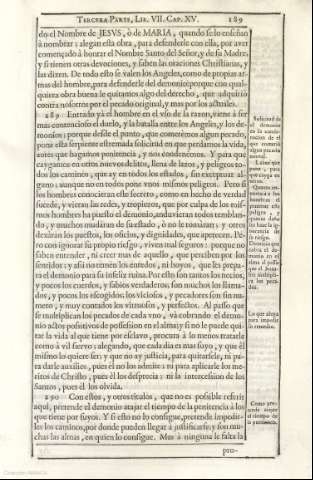 TERCERA PARTE, LIB. VII. CAP. XV. 189
do el Nombre de JESVS, ò de MARIA, quando se lo enseñan
à nombrar: alegan esta obra, para defenderle con ella, por aver
començado à honrar el Nombre Santo del Señor, y de su Madre,
y si tienen otras devociones, y saben las oraciones Christianas, y
las dizen. De todo esto se valen los Angeles, como de propias ar-
mas del hombre, para defenderle del demonio; porque con qual-
quiera obra buena le quitamos algo del derecho, que adquiriò
contra nosotros por el pecado original, y mas por los actuales.
289 Entrado yà el hombre en el vso de la razon, viene à ser
mas contencioso el duelo, y la batalla entre los Angeles, y los de-
monios; porque desde el punto, que cometemos algun pecado,
pone esta serpiente estremada solicitud en que perdamos la vida,
antes que hagamos penitencia, y nos condenemos. Y para que
caygamos en otros nuevos delitos, llena de lazos, y peligros to-
dos los caminos, que ay en todos los estados, sin exceptuar al-
guno; aunque no en todos pone vnos mismos peligros. Pero si
los hombres conocieran este secreto, como en hecho de verdad
sucede, y vieran las redes, y tropieços, que por culpa de los mis-
mos hombres ha puesto el demonio, anduvieran todos temblan-
do, y muchos mudàran de estado, ò no le tomàran; y otros
dexàran los puestos, los oficios, y dignidades, que apetecen. Pe-
ro con ignorar su propio riesgo, viven mal seguros: porque no
saben entender, ni creer mas de aquello, que perciben por los
sentidos; y assi no temen los enredos, ni hoyos, que les prepa-
ra el demonio para su infeliz ruina. Por esto son tantos los necios,
y pocos los cuerdos, y sabios verdaderos; son muchos los llama-
dos, y pocos los escogidos; los viciosos, y pecadores son sin nu-
mero, y muy contados los virtuosos, y perfectos. Al passo que
se multiplican los pecados de cada vno, và cobrando el demo-
nio actos positivos de possession en el alma; y si no le puede qui-
tar la vida al que tiene por esclavo, procura à lo menos tratarle
como à vil siervo; alegando, que cada dia es mas suyo, y que èl
mismo lo quiere ser; y que no ay justicia, para quitarsele, ni pa-
ra darle auxilios, pues èl no los admite; ni para aplicarle los me-
ritos de Christo, pues èl los desprecia; ni la intercession de los
Santos, pues èl los olvida.
290 Con estos, y otros titulos, que no es possible referir
aqui, pretende el demonio atajar el tiempo de la penitencia à los
que tiene por suyos. Y si esto no lo consigue, pretende impedir-
les los caminos, por donde pueden llegar à justificarse; y son mu-
chas las almas, en quien lo consigue. Mas à ninguna le falta la
pro-
Solicitud de
el demonio
en la conde-
nacion de el
que cometiò
algun pecado
mortal.
Lazos que
pone, para
que cayga en
otros.
Quanto te-
mieran los
hombres si